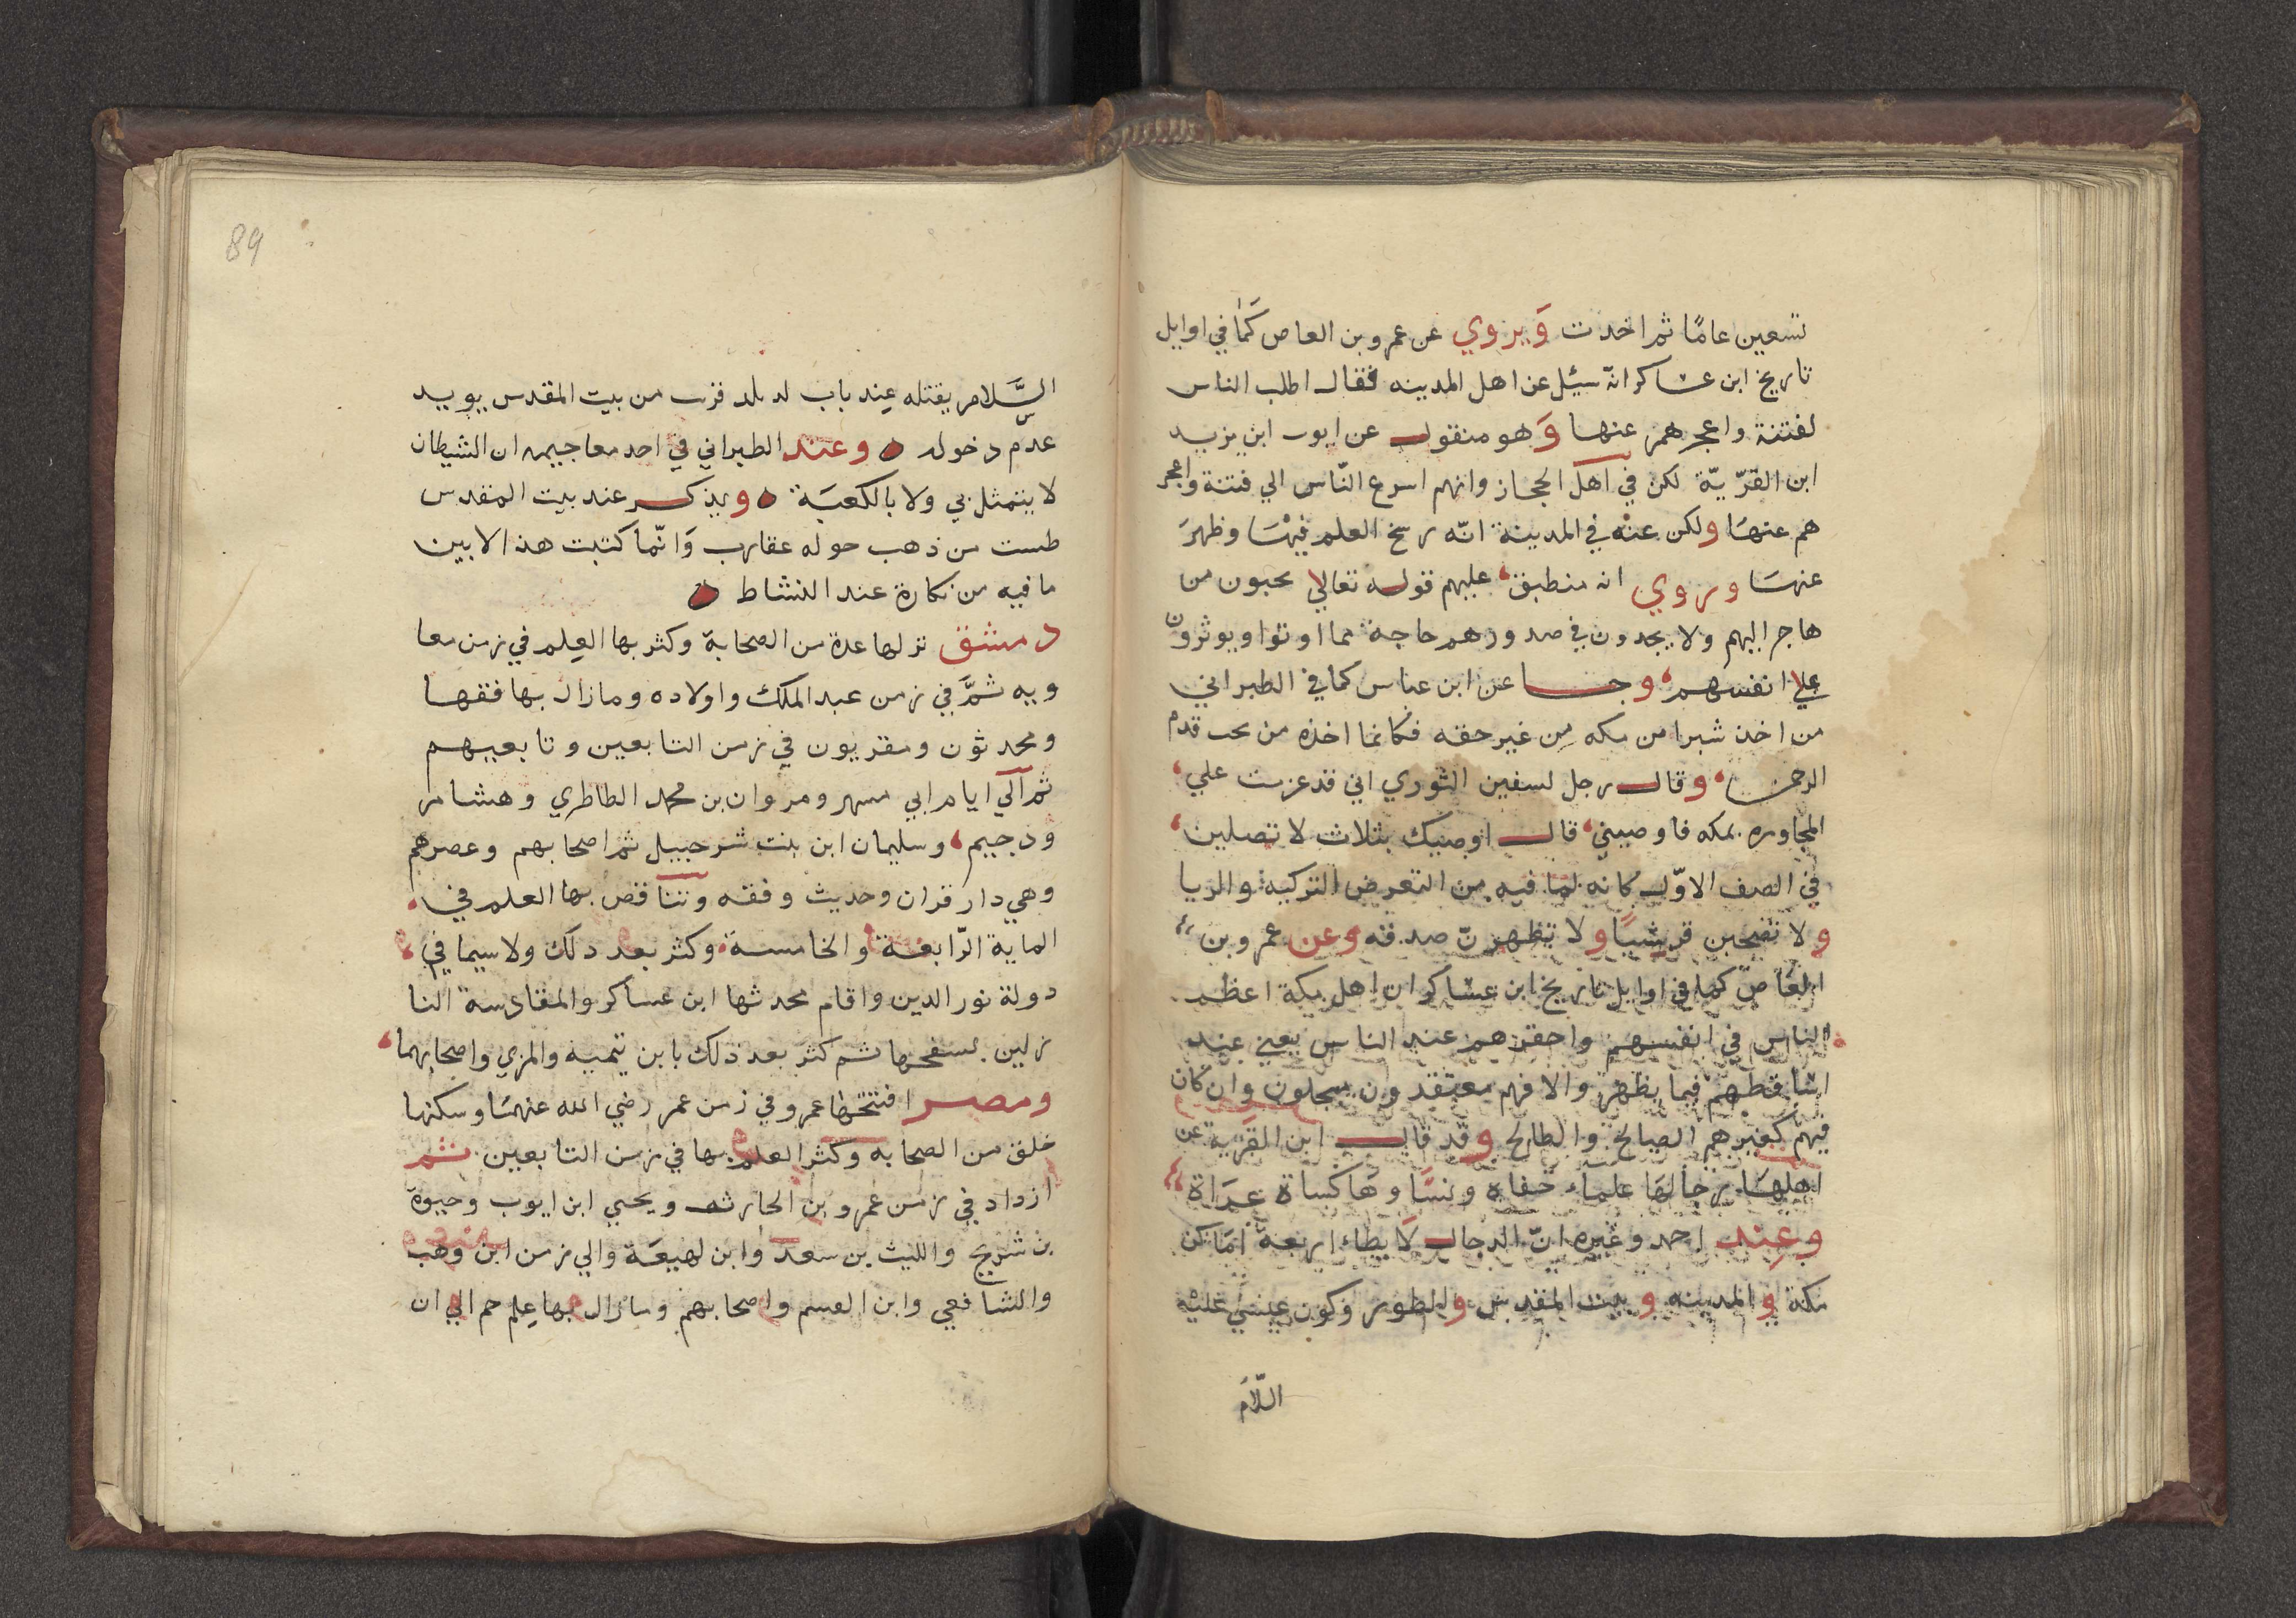 تسعين عامًا ثم اخدت وَيروي عن عمرو بن العاص كَما في اوايل
تاريخ ابن عساكر انه سيئل عن اهل المدينه فقال اطلب الناس
لفتنة واعجرهم عنها وَهو منقول عن ايوب ابن يزيد
ابن القرّيّة لكن في اهل الحجاز وانهم اسرع النّاس الي فتنة واعجر
هم عنهَا ولكن عنْه في المدينة انّه رسخ العلم فيهَا وظهرَ
عنهسَا وروي انه منطبق عليهم قوله تعالي يحبون من
هاجر اليهم ولا يجدون في صدورهم حاجة مما اوتوا ويوثرون
علي انفسهم وجا عن ابن عباس كما في الطبراني
من اخذ شبرا من مكه مِن غير حقه فكانما اخذه من تحت قدم
الرحمن وقال رجل لسفين الثوري اني قد عزمت علي
المجاوره بمكه فاوصيني قال اوصيك بثلاث لا تصلين
في الصف الاوّل كانه لما فيه من التعرض التزكية والريا
ولا تصحبن قرشيًا ولا تظهرنّ صدقه وعن عمرو بن
العَاص كما في اوايل تاريخ ابن عساكر ان اهل مكة اعظم
الناس في انفسهم واحقرهم عند الناس يعني عند
اساقطهم فيما يظهر والا فهم معتقدون مبجلون وان كان
فيهم كغيرهم الصالح والطالح وقد قال ابن القرّية عن
اهلهَا رجالهَا علماء حفاة ونسَاوهَا كساة عرَاة
وعِند احمد وغيره انّ الدجال لَا يطاء اربعة امَاكن
مكة والمدينه وبيت المقدس والطور وكون عيسي عليْه
اللّامَ
89
السَّلام يقتله عِند باب لد بلد قرب من بيت المقدس يويد
عدم دخوله وعند الطبراني في احد معاجيمه ان الشيطان
لا يتمثل بي ولا بالكعبَة ويذكر عند بيت المقدس
طست من ذهب حوله عقارب وَانّما كتبت هذا لابين
ما فيه من نكارة عند النشاط
دمشق نزلها عدة من الصحابة وكثر بها العِلم في زمن معا
ويه ثمَّ في زمن عبد الملك واولاده ومازال بها فقها
ومحدثون ومقريون في زمن التابعين وتابعيهم
ثم الي ايام ابي مسهر ومروان بن محمد الطاطري وهشام
ودجيم وسليمان ابن بنت شرحبيل ثم اصحابهم وعصرهم
وهي دار قران وحديث وفقه وتناقص بها العلم في
الماية الرّابعة والخامسة وكثر بعد دلك ولا سيما في
دولة نور الدين واقام محدثها ابن عساكر والمقادسة النا
زلين بسفحها ثم كثر بعد ذلك بابن تيميه والمزي واصحابهما
ومصر افتتحها عمرو في زمن عمر رضي الله عنهمَا وسكنها
خلق من الصحابه وكثر العلم بها في زمن التابعين ثم
ازداد في زمن عمرو بن الحارث ويحيي ابن ايوب وحيوة
بن شريح والليث بن سعد وابن لهيعَة والي زمن ابن وهب
والشافعي وابن القسم واصحابهم ومازال بها عِلم جم الي ان